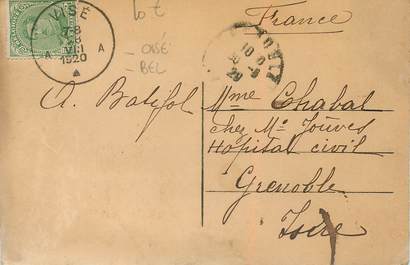 France
VISÉ
7-8
VII
1920
A A
10 €
- OISÉ
- BEL
A. Batifol
Mme Chabal
chez Mr Jouves
Hôpital civil
Grenoble
Isère